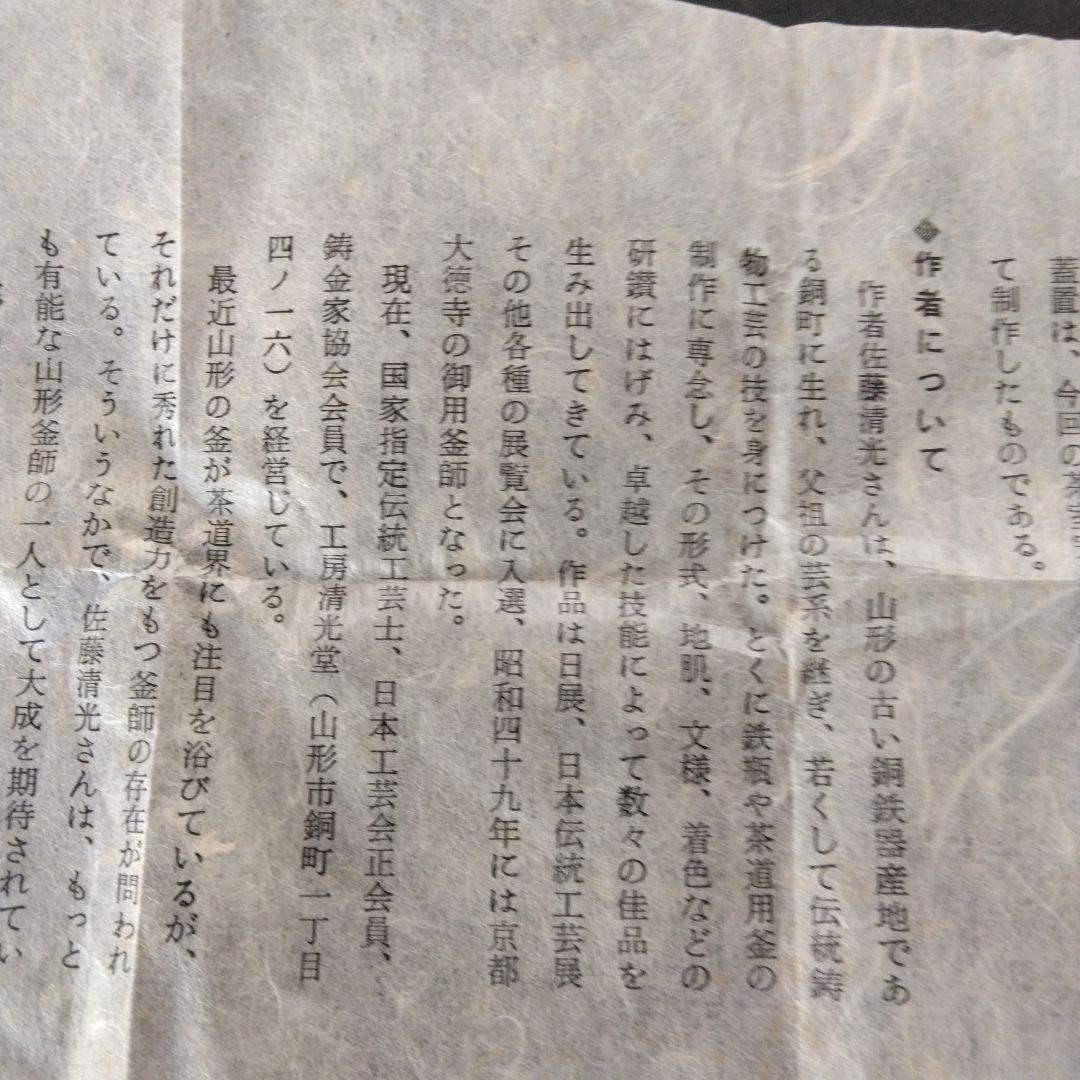 蓋置は、今回の茶室
て制作したものである。
◆作者について
作者佐藤清光さんは、山形の古い銅鉄器産地であ
る銅町に生れ、父祖の芸系を継ぎ、若くして伝統鋳
物工芸の技を身につけた。とくに鉄瓶や茶道用釜の
制作に専念し、その形式、地肌、文様、着色などの
研鑽にはげみ、卓越した技能によって数々の佳品を
生み出してきている。作品は日展、日本伝統工芸展
その他各種の展覧会に入選、昭和四十九年には京都
大徳寺の御用釜師となった。
現在、国家指定伝統工芸士、日本工芸会正会員、
鋳金家協会会員で、工房清光堂（山形市銅町一丁目
四ノ一六）を経営している。
最近山形の釜が茶道界にも注目を浴びているが、
それだけに秀れた創造力をもつ釜師の存在が問われ
ている。そういうなかで、佐藤清光さんは、もっと
も有能な山形釜師の一人として大成を期待されてい